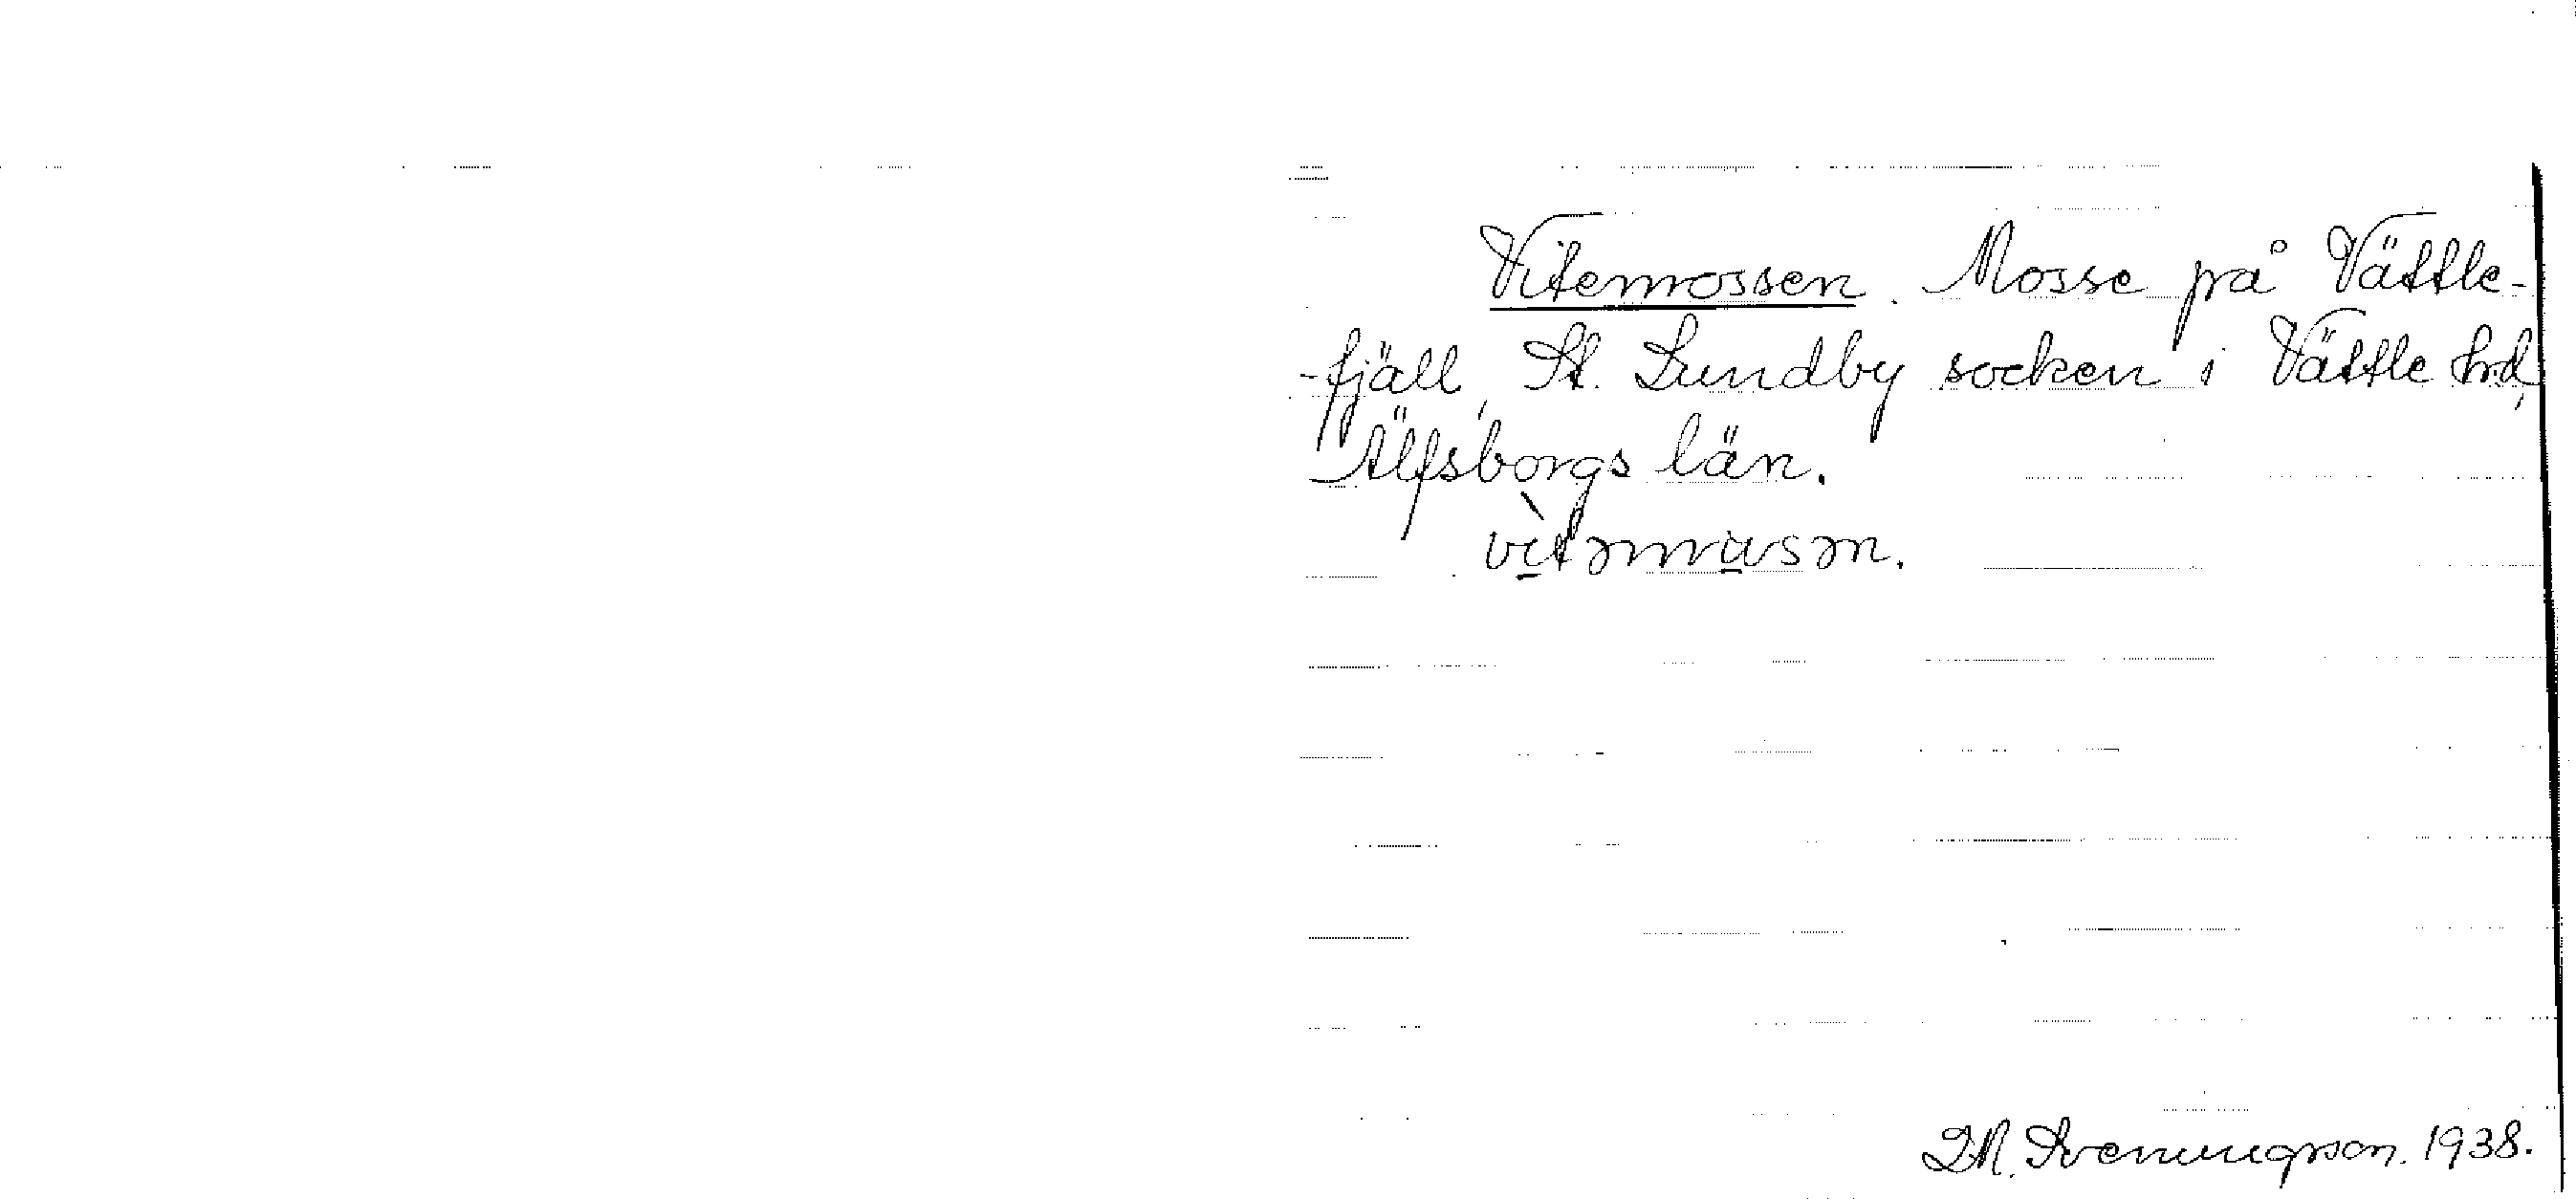 Vitemossen. Mosse på Vättle-
-fjäll, St. Lundby socken i Vättle hrd,
Älfsborgs län.
vìtəmɷsən.
D.M. Svenungsson. 1938.